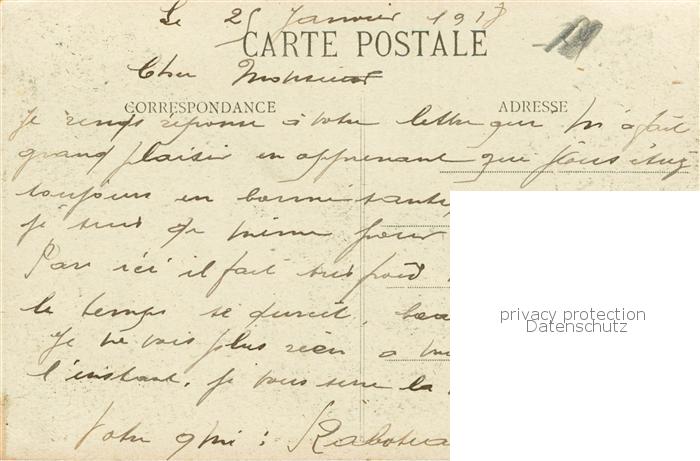 Le 25 Janvier 1918
CARTE POSTALE
Cher Monsieur
CORRESPONDANCE
ADRESSE
Je rends réponse à votre lettre qui m'a fait
grand plaisir en apprenant que vous étiez
toujours en bonne santé,
je suis de même pour
Par ici il fait très froid
le temps se durcit,
Je ne vois plus rien a
l'instant, je vous serre la
Votre ami :
privacy protection
Datenschutz